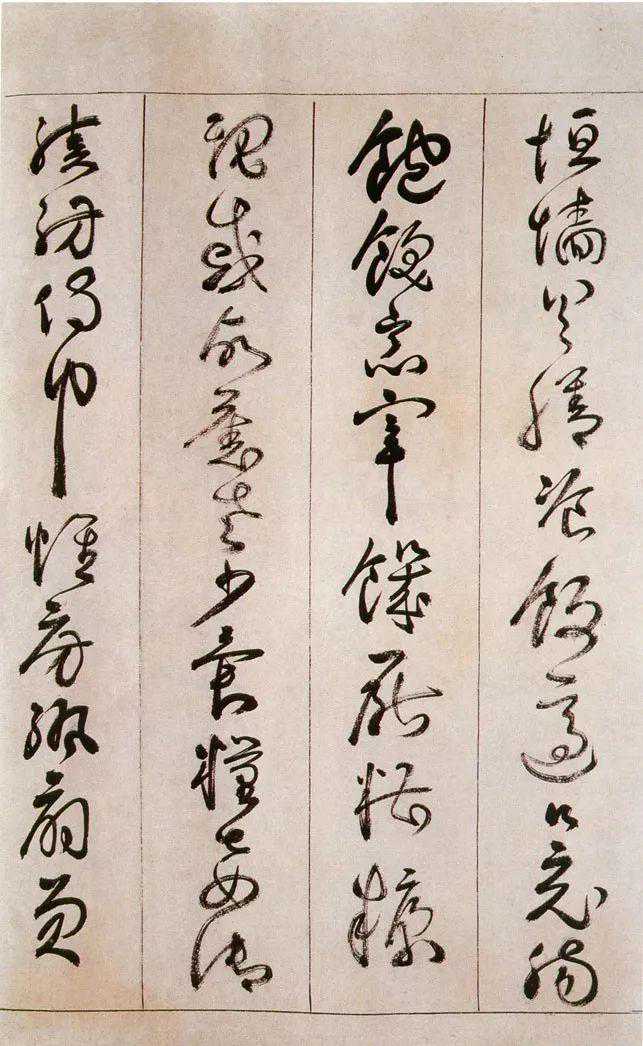 垣墻具膳飡飯適口充腸
飽飫烹宰饑厭糟糠
親戚故舊老少異糧妾御
績紡侍巾帷房紈扇員